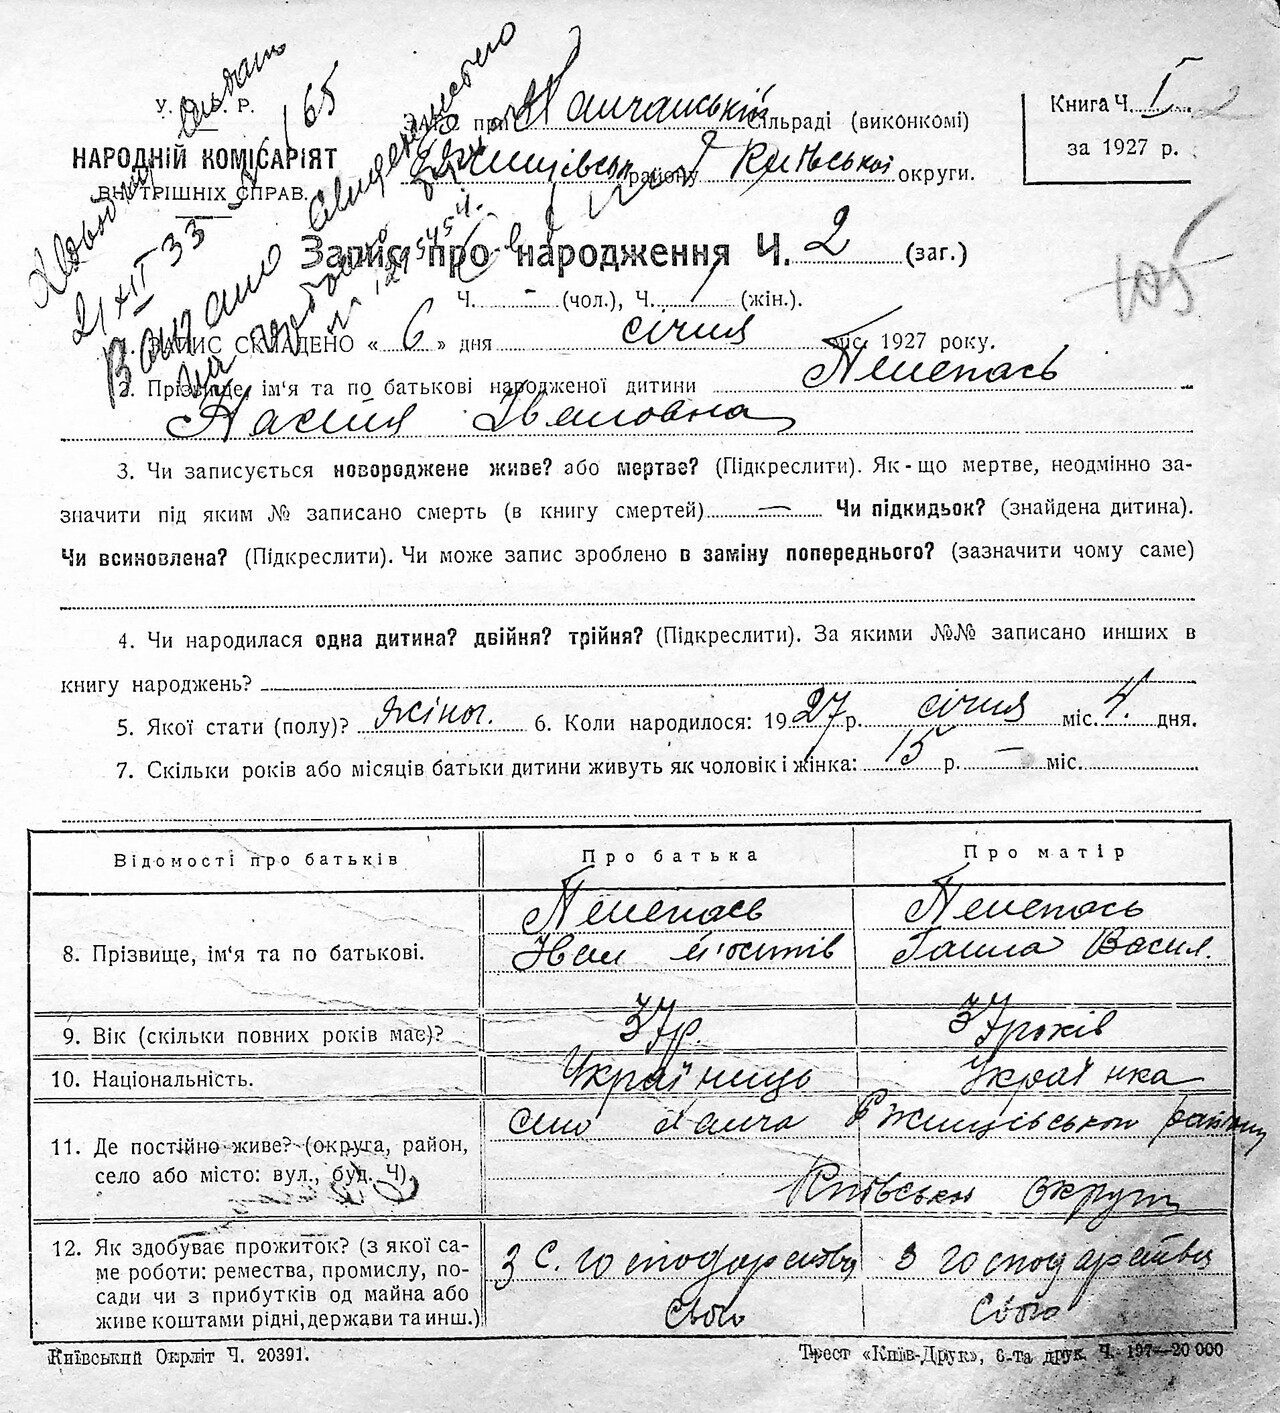 У. Р.
НАРОДНІЙ КОМІСАРІЯТ
ВНУТРІШНІХ СПРАВ.
21/XII 33 165
Видано
ЗАГС при Ханчанській Сільраді (виконкомі)
Ржищівськ району Київської округи.
Книга Ч. I 2
за 1927 р.
105
Запис про народження Ч. 2 (заг.)
Ч. - (чол.), Ч. 1 (жін.).
1. ЗАПИС СКЛАДЕНО « 6 » дня січня міс. 1927 року.
2. Прізвище, ім'я та по батькові народженої дитини
Настя Івановна
3. Чи записується новороджене живе? або мертве? (Підкреслити). Як-що мертве, неодмінно за-
значити під яким № записано смерть (в книгу смертей) — Чи підкидьок? (знайдена дитина).
Чи всиновлена? (Підкреслити). Чи може запис зроблено в заміну попереднього? (зазначити чому саме)
4. Чи народилася одна дитина? двійня? трійня? (Підкреслити). За якими №№ записано инших в
книгу народжень?
5. Якої стати (полу)? жіноч. 6. Коли народилося: 1927 р. січня міс. 4. дня.
7. Скільки років або місяців батьки дитини живуть як чоловік і жінка: 15 р. — міс.
Відомості про батьків Про батька Про матір
8. Прізвище, ім'я та по батькові. Іван Ганна Васил.
9. Вік (скільки повних років має)? 37 р. 37 років
10. Національність. Українець Українка
11. Де постійно живе? (округа, район, село Ханча Ржищівської району
село або місто: вул., буд. Ч). Київської округи
12. Як здобуває прожиток? (з якої са- З С. господарства З господарства
ме роботи: ремества, промислу, по-
сади чи з прибутків од майна або свого свого
живе коштами рідні, держави та инш.)
Київський Окрліт Ч. 20391.
Трест «Київ-Друк», 6-та друк. Ч. 197—20 000